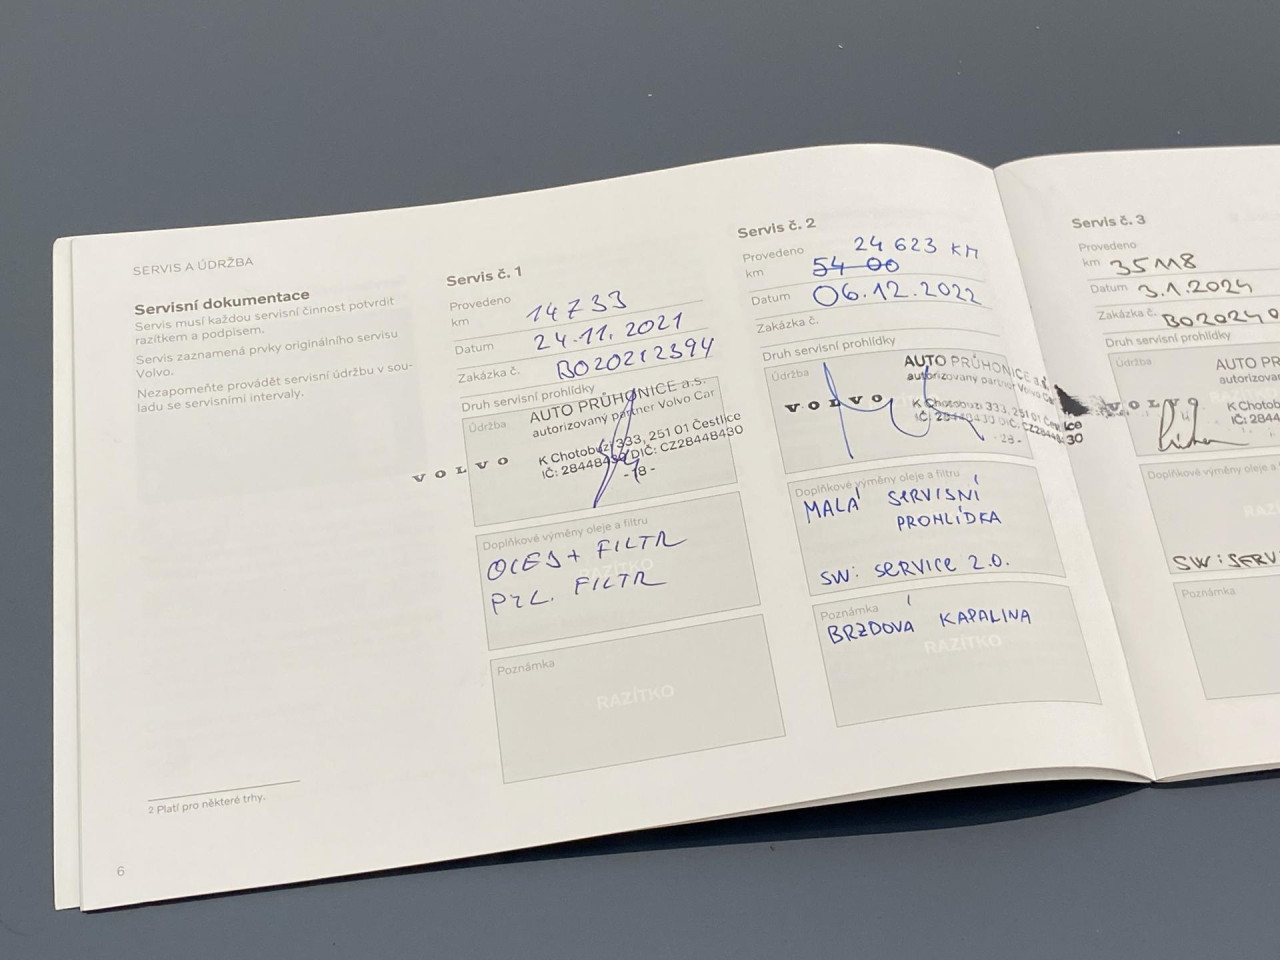 SERVIS A ÚDRŽBA
Servisní dokumentace
Servis musí každou servisní činnost potvrdit
razítkem a podpisem.
Servis zaznamená prvky originálního servisu
Volvo.
Nezapomeňte provádět servisní údržbu v sou-
ladu se servisními intervaly.
2 Platí pro některé trhy.
6
Servis č. 1
Provedeno
km 14733
Datum 24.11.2021
Zakázka č. BO20212394
Druh servisní prohlídky
Údržba
AUTO PRŮHONICE a.s.
autorizovaný partner Volvo Car
VOLVO
K Chotobuzi 333, 251 01 Čestlice
IČ: 28448430 DIČ: CZ28448430
-18-
Doplňkové výměny oleje a filtru
OLEJ + FILTR
PYL. FILTR
RAZÍTKO
Poznámka
RAZÍTKO
Servis č. 2
Provedeno 24 623 KM
km 54 00
Datum 06.12.2022
Zakázka č.
Druh servisní prohlídky
Údržba
AUTO PRŮHONICE a.s.
autorizovaný partner Volvo Car
VOLVO
K Chotobuzi 333, 251 01 Čestlice
IČ: 28448430 DIČ: CZ28448430
-28-
Doplňkové výměny oleje a filtru
MALÁ SERVISNÍ
PROHLÍDKA
SW: SERVICE 2.0.
Poznámka
BRZDOVÁ KAPALINA
RAZÍTKO
Servis č. 3
Provedeno
km 35118
Datum 3.1.2024
Zakázka č. BO20240
Druh servisní prohlídky
Údržba
AUTO PR
autorizovan
VOLVO
K Chotob
IČ: 2844
Doplňkové výměny oleje a f
RAZ
SW: SERV
Poznámka